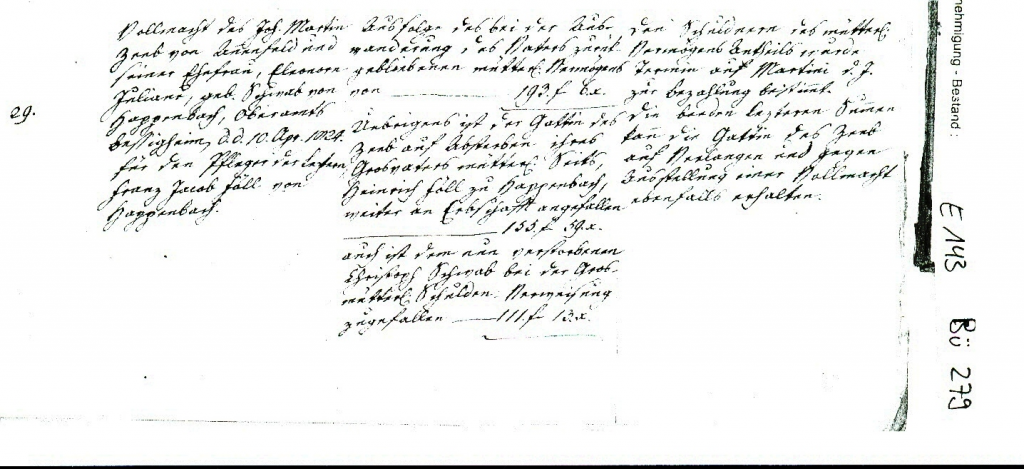 29.
Vollmacht des Joh. Martin
Zeeb von Auenfeld und
seiner Ehefrau, Eleonore
Juliane, geb. Schwab von
Happenbach, Oberamts
Besigheim, d.d. 10. Apr. 1824.
für den Pfleger der leztern
Franz Jacob Föll von
Happenbach.
Ausfolge des bei der Aus-
wanderung des Vaters zurük
gebliebenen mütterl. Vermögens
von 193. f 6. x.
Uebrigens ist der Gattin des
Zeeb auf Absterben ihres
Grosvaters mütterl. Seits,
Heinrich Föll zu Happenbach,
weiter an Erbschaft angefallen
155. f 59. x.
auch ist dem nun verstorbenen
Christoph Schwab bei der Gros-
mütterl. Schulden-Verweisung
zugefallen 111. f 13. x.
Den Schuldnern des mütterl.
Vermögens Antheils wurde
Termin auf Martini d. J.
zur Bezahlung bestimmt.
Die beeden lezteren Sumen
kann die Gattin des Zeeb
auf Verlangen und gegen
Ausstellung einer Vollmacht
ebenfalls erhalten.
nehmigung - Bestand:
E 143 Bü 279